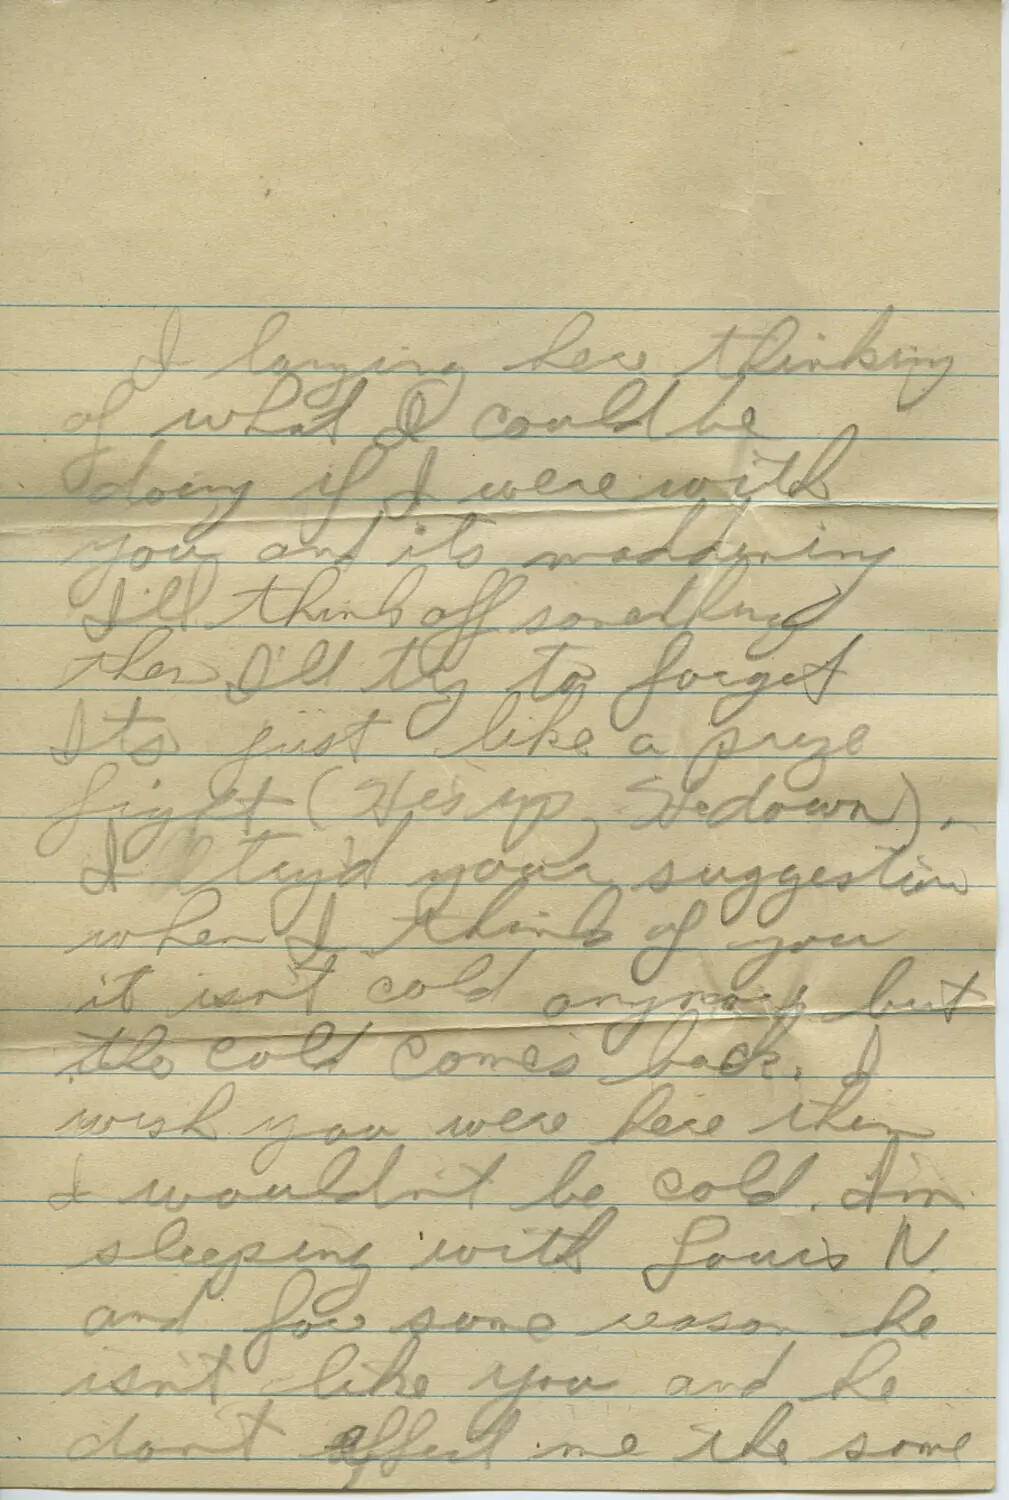 I laying here thinking
of what I could be
doing if I were with
you and its maddening
I'll think off something
then I'll try to forget
Its just like a prize
fight (He's up, He down).
I try'd your suggestion
when I think of you
it isn't cold anymore but
the cold comes back. I
wish you were here then
I wouldn't be cold. I'm
sleeping with Louis N.
and for some reason he
isn't like you and he
don't affect me the same